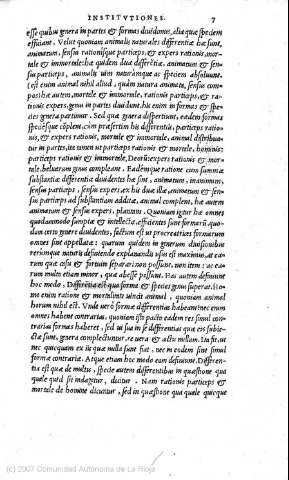 INSTITVTIONES. 7
esse quibus genera in partes & formas diuidimus, alia quæ speciem
efficiant. Velut quoniam animalis naturales differentiæ hæ sunt,
animatum, sensus rationisque particeps, & expers rationis, mor-
tale & immortale: hæ quidem duæ differētiæ, animatum & sen-
sus particeps, animalis uim naturámque ac speciem absoluunt.
(est enim animal nihil aliud, quàm natura animata, sensus com-
pos) hæ autem, mortale & immortale, rationis particeps, & ra-
tionis expers, genus in partes diuidunt. his enim in formas & spe-
cies genera partimur. Sed quæ genera dispertiunt, eædem formas
speciésque cōplent. cùm præsertim his differentiis, particeps ratio-
nis, & expers rationis, mortale & immortale, animal distribua-
tur in partes, ita tamen ut particeps rationis & mortale, hominis:
particeps rationis & immortale, Deorū: expers rationis & mor-
tale, beluarum genus compleant. Eadémque ratione cum summæ
substantiæ differentiæ diuidentes hæ sint, animatum, inanimum,
sensus particeps, sensus expers: ex his duæ illæ, animatum & sen-
sus particeps ad substantiam additæ, animal complent, hæ autem
animatum & sensus expers, plantam. Quoniam igitur hæ omnes
quodammodo sumptæ & intellectæ, efficientes sunt formarū, quo-
dam certo genere diuidentes, factum est ut procreatrices formarum
omnes sint appellatæ: quarum quidem in generum diuisionibus
rerúmque naturis definiendo explanandis usus est maximus. at ea-
rum quæ casu & fortuito separari non possunt, non item: ac ea-
rum multo etiam minor, quæ abesse possunt. Eas autem definiunt
hoc modo, Differentia est qua forma & species genus superat. Ho-
mo enim ratione & mortalitate uincit animal, quoniam animal
horum nihil est. Vnde uerò formæ differentias habeant? nec enim
omnes habent contrarias, quoniam isto pacto eædem res simul con-
trarias formas haberet, sed ui sua in se differentias quæ eis subie-
ctæ sunt, genera complectuntur. re uera & actu nullam. Ita fit, ut
nec quicquam ex iis quæ nulla sunt fiat, nec in eodem sint simul
formæ contrariæ. Atque etiam hoc modo eam definiunt. Differen-
tia est quæ de multis, specie autem differentibus in quæstione qua
quale quid sit indagatur, dicitur. Nam rationis particeps &
mortale de homine dicuntur, sed in quæstione qua quale quicque
(c) 2007 Comunidad Autónoma de La Rioja